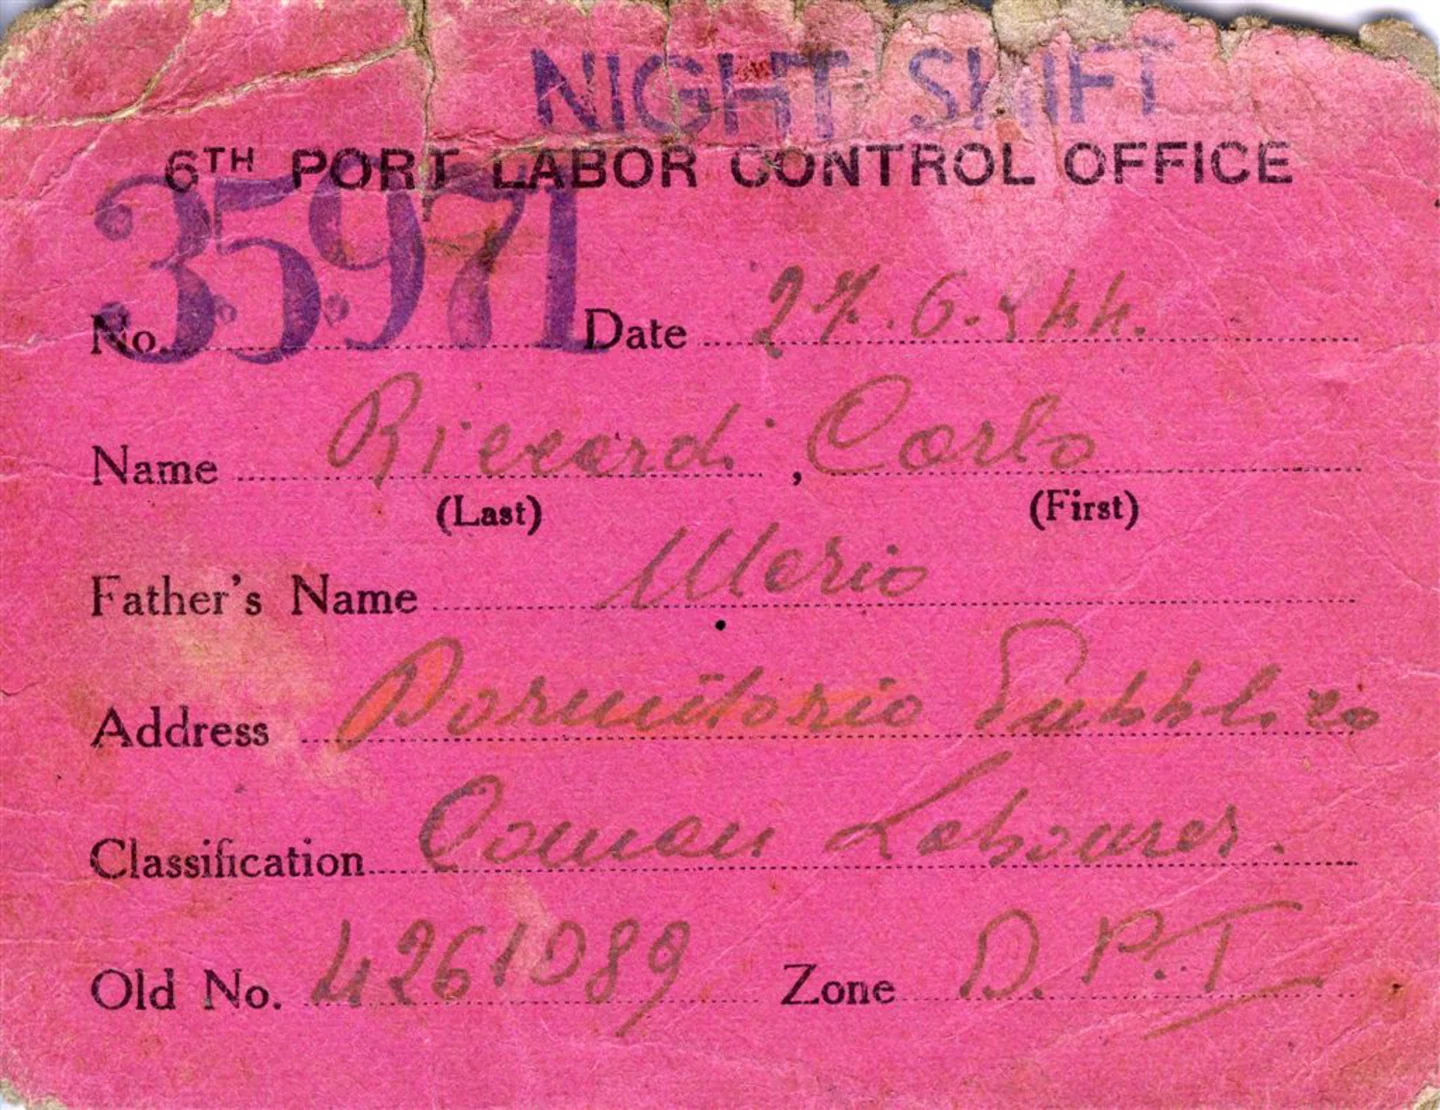 NIGHT SHIFT
6TH PORT LABOR CONTROL OFFICE
No. 35971 Date 27.6.944.
Name Riccardi, Carlo
(Last) (First)
Father's Name Mario
Address Dormitorio Pubblico
Classification Coman Labourer.
Old No. 4261089 Zone D.P.T